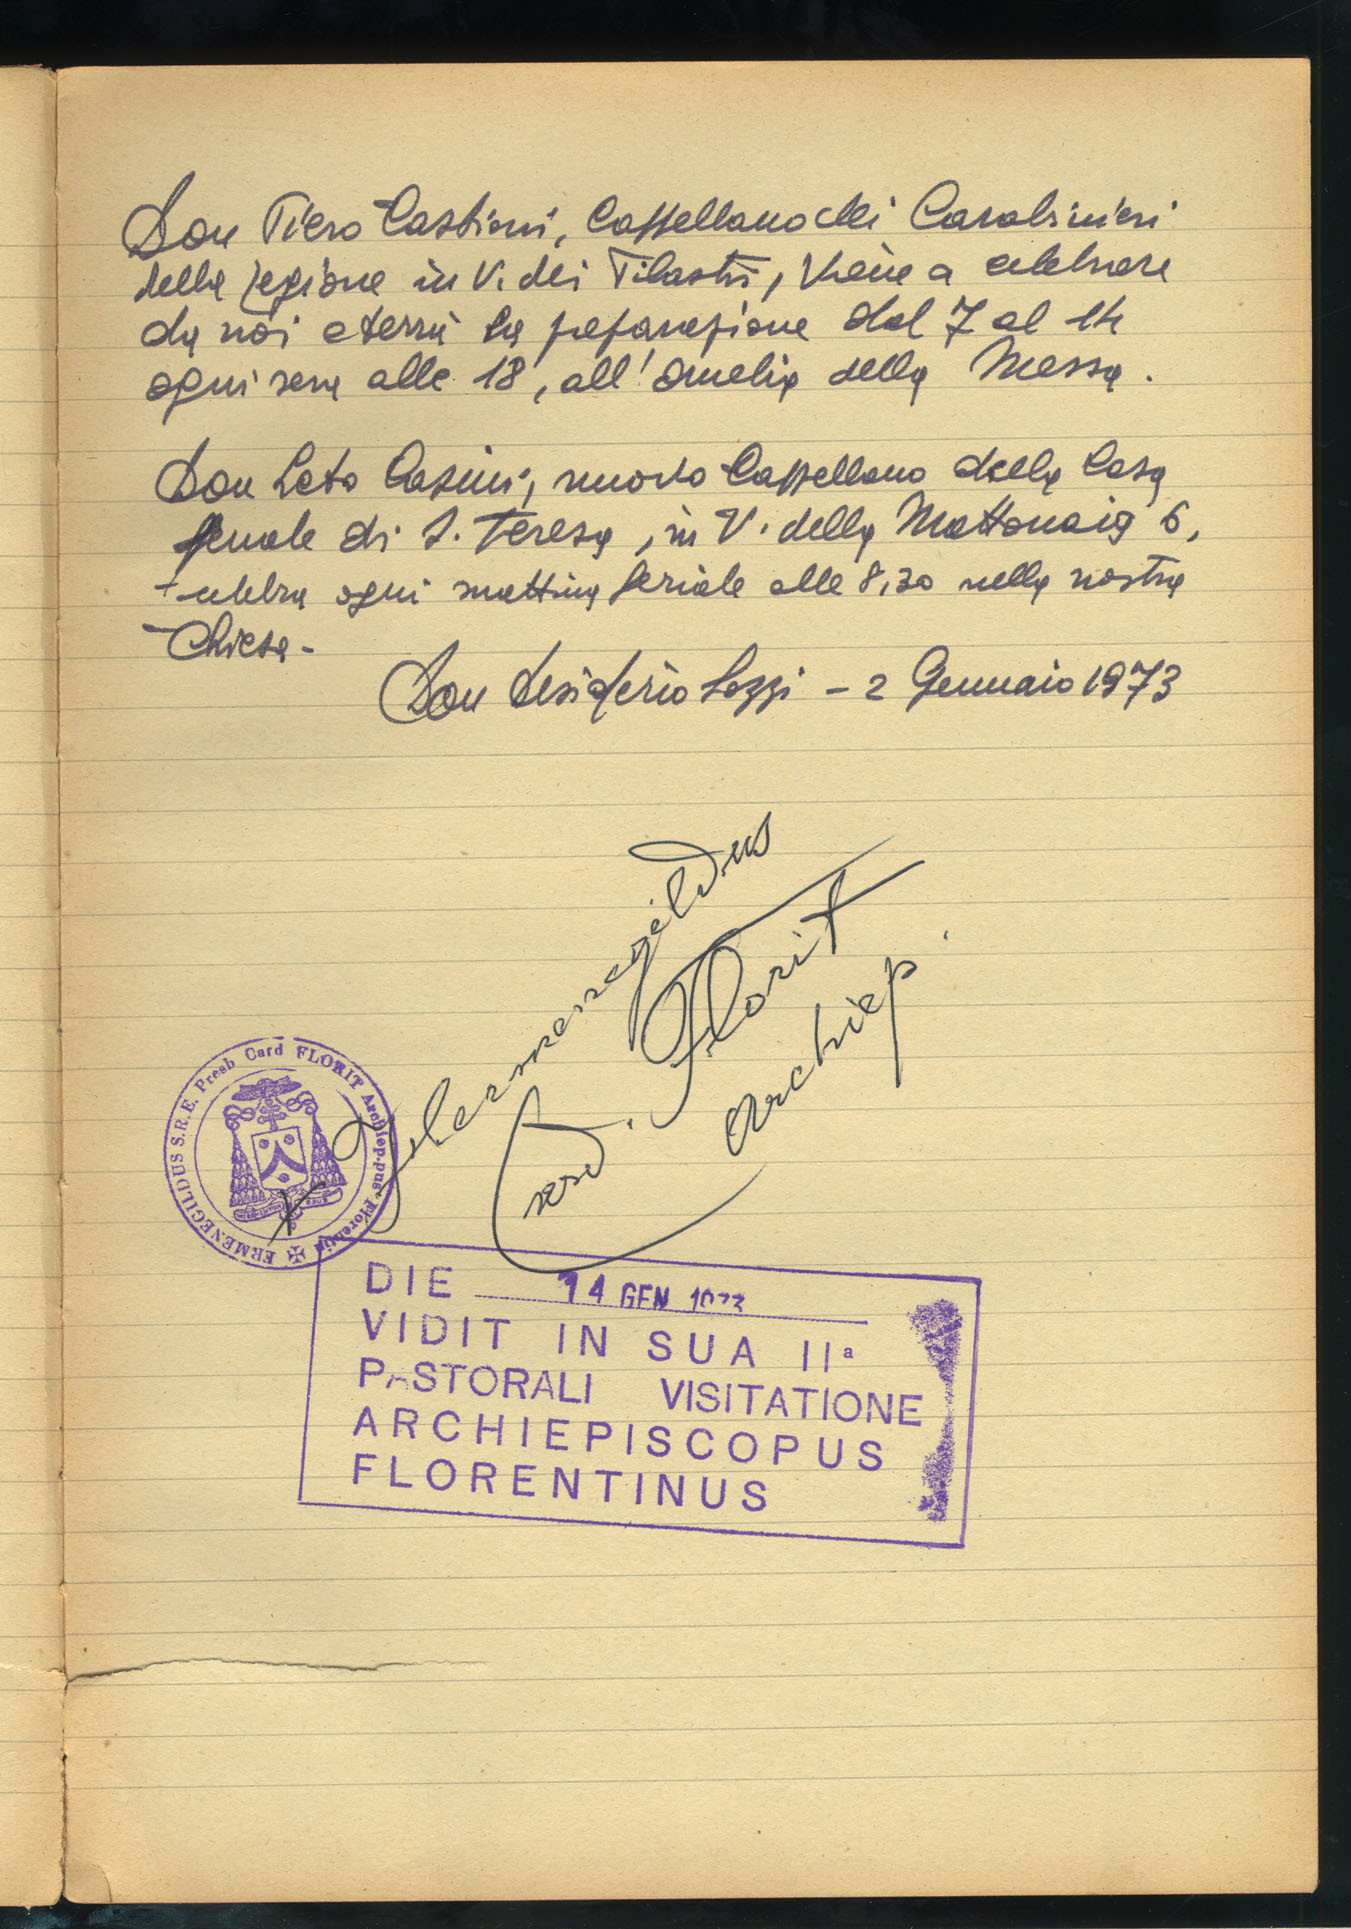 Don Piero Castioni, Cappellano dei Carabinieri
della legione in V. dei Pilastri, viene a celebrare
da noi e terrà la preparazione dal 7 al 14
ogni sera alle 18, all'omelia della Messa.
Don Leto Casini, nuovo Cappellano della Casa
penale di S. Teresa, in V. della Mattonaia 6,
celebra ogni mattina feriale alle 8,30 nella nostra
Chiesa-
Don Desiderio Lozzi - 2 Gennaio 1973
+ Hermenegildus
card. Florit
archiep.
ERMENEGILDUS S.R.E. Presb Card FLORIT Archiep.pus Florentin
DIE 14 GEN 1973
VIDIT IN SUA IIª
PASTORALI VISITATIONE
ARCHIEPISCOPUS
FLORENTINUS